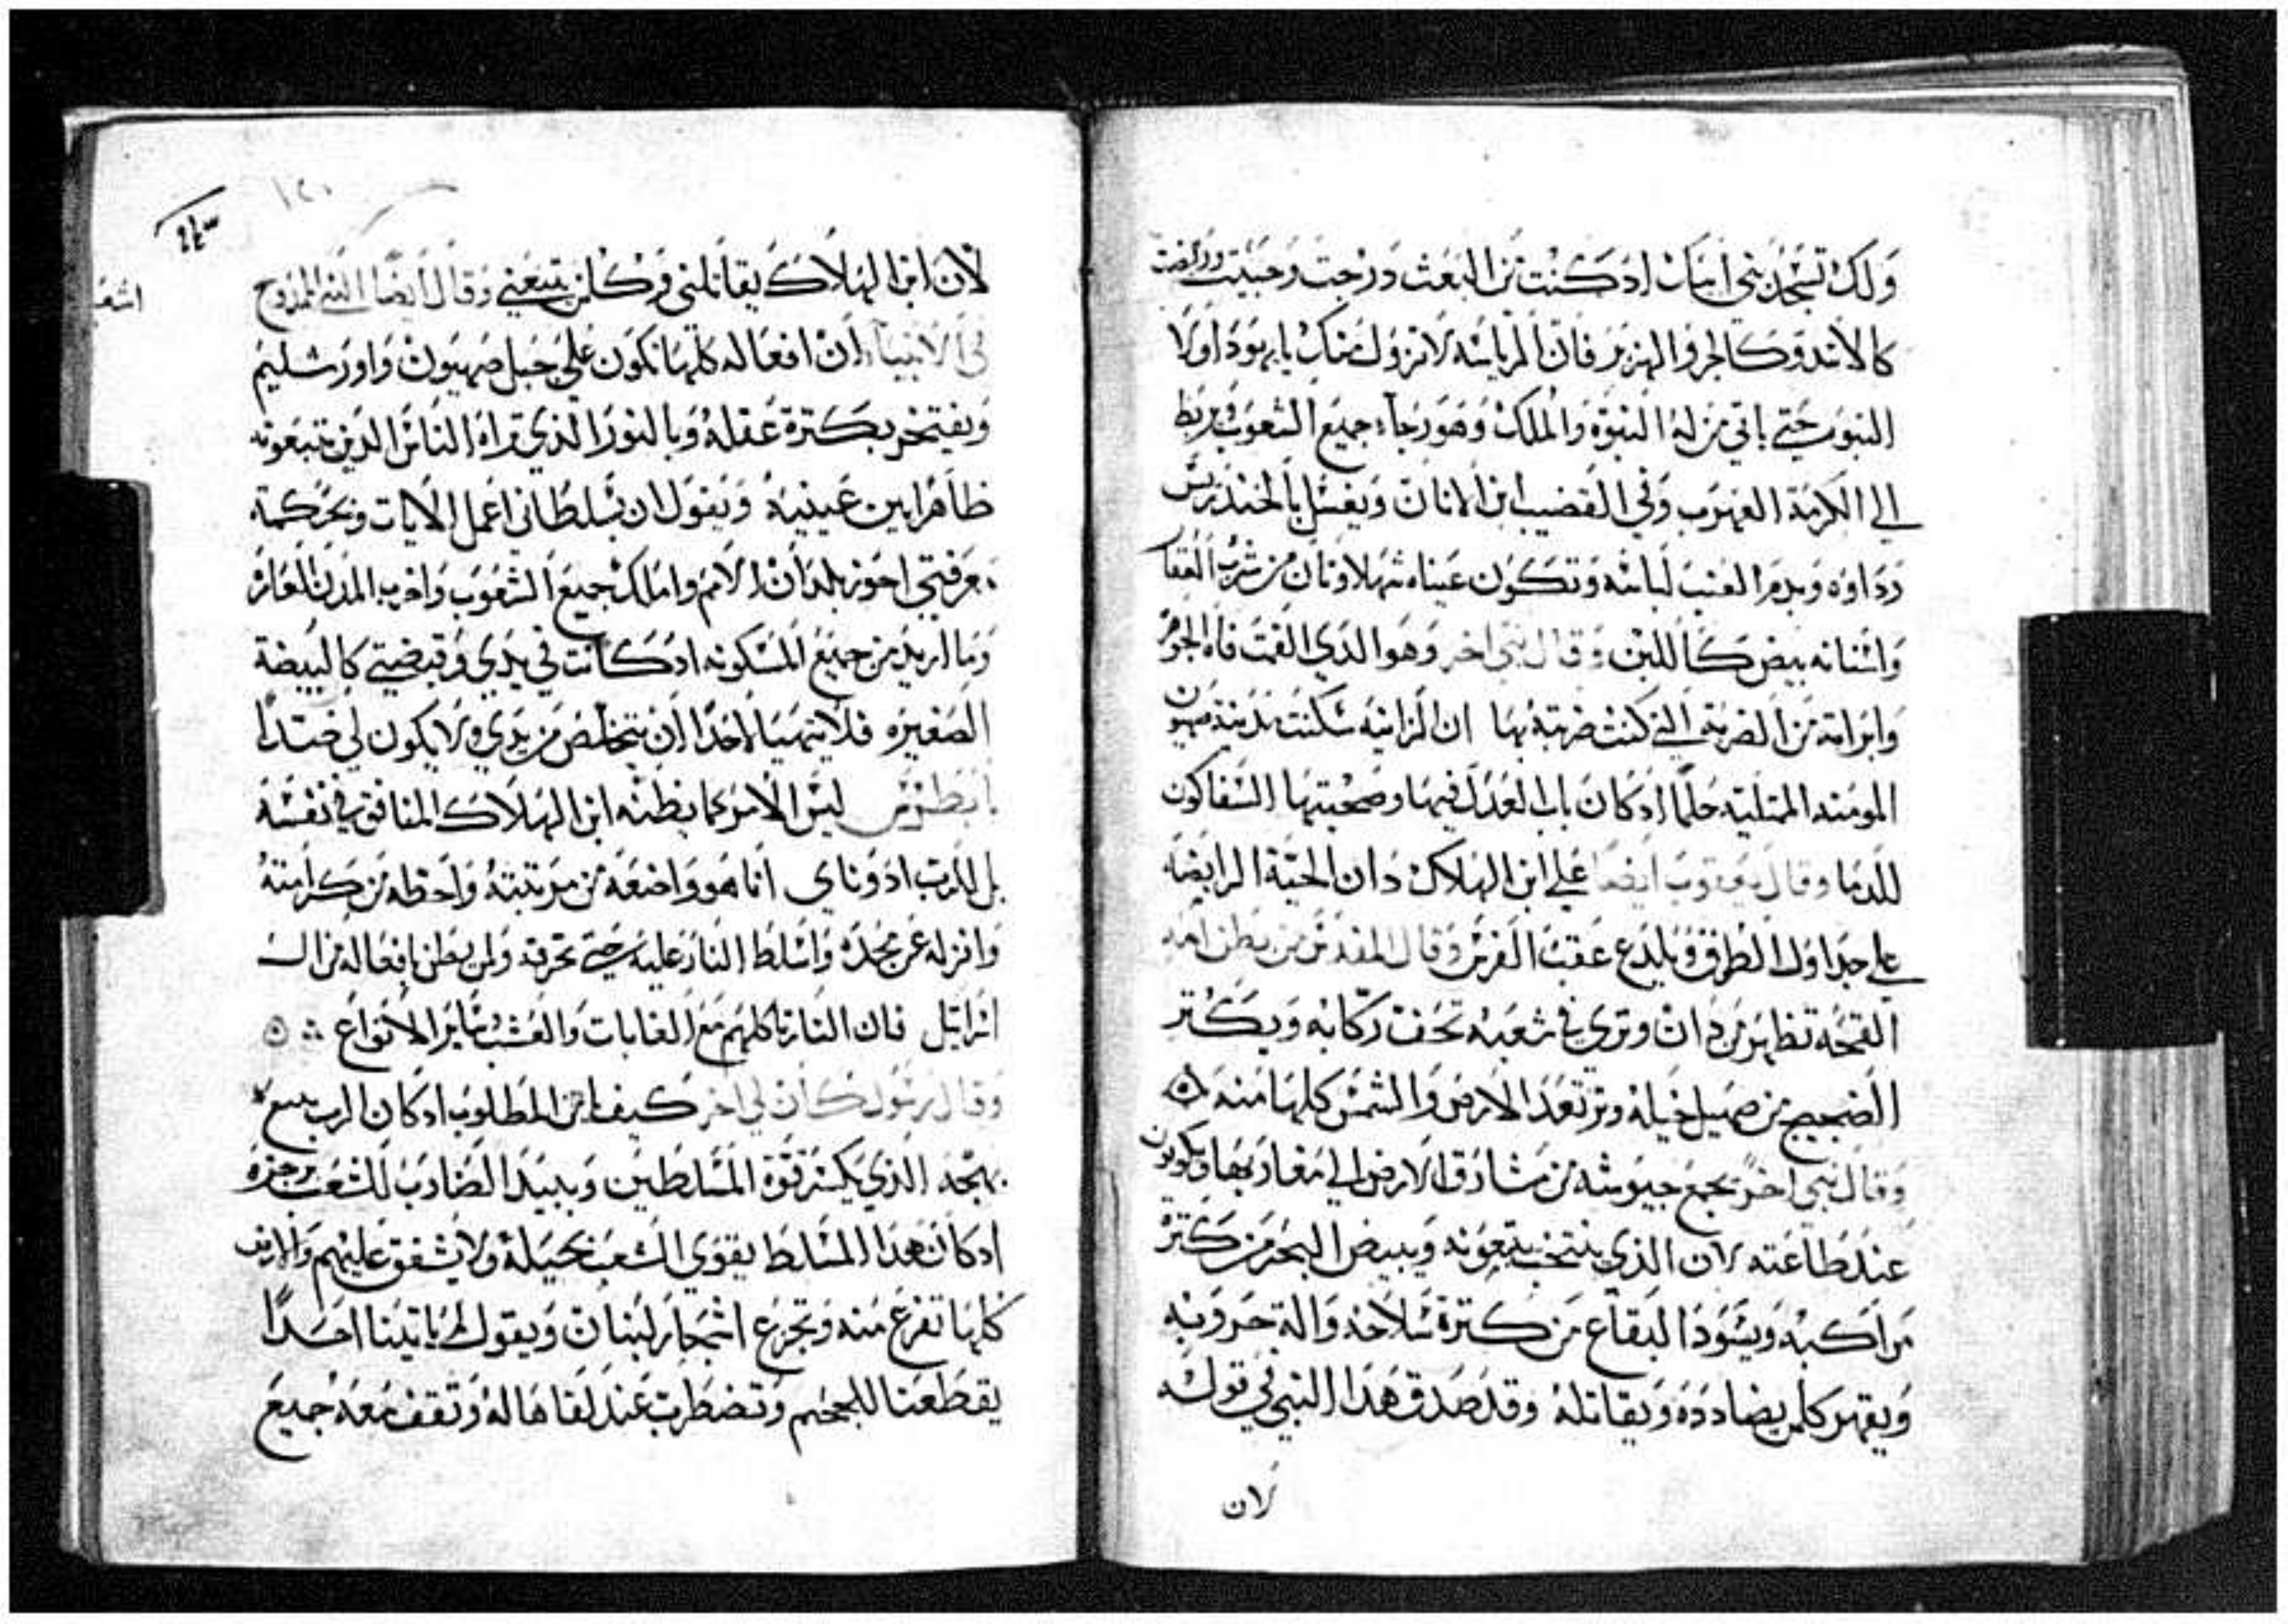 ولك تسجد بني ابيك اد كنت من البعث درجت وحبيت وربضت
كالاسد وكالجرو الهزبر فان الرياسه لا تزول منك يا يهودا ولا
النبوه حتي ياتي من له النبوة والملك وهو رجاء جميع الشعوب يربط
الي الكرمة العهوب وفي القضيب ابن الاتان ويغسل بالخندريس
رداوه وبدم العنب لباسه وتكون عيناه شهلاوتان من شرب العقا
واسنانه بيض كاللبن وقال نبي اخر وهو الدي القمت فاه الجمر
وابراته من الضربة التي كنت ضربته بها ان الزانيه سكنت مدينة صهيون
المومنه الممتليه حلما اد كان باب العدل فيها وصحبتها السفاكون
للدما وقال يعقوب ايضا علي ابن الهلاك دان الحية الرابضه
علي جداول الطرق ويلدع عقب الفرس وقال المقدس من بطن امه
القمحه تظهر من دان وتري في شعبه تحفت ركابه ويكتر
الضجيج من صهيل خيله وترتعد الارض والشمس كلها منه
وقال نبي اخر يجمع جيوشه من مشارق الارض الي مغاربها ويكونون
عند طاعته لان الذي ينتخب يتبعونه ويبيض البحر من كتر
مراكبه ويسود البقاع من كترة سلاحه والة حروبه
ويقهر كلمن يضادده ويقاتله وقد صدق هدا النبي في قوله
لان
١٢٠
اشعيا
لان ابن الهلاك يقاتلني وكلمن يتبعني وقال ايضا النبي الممدوح
في الانبياء ان افعاله كلها تكون علي جبل صهيون واورشليم
ويفتخر بكترة عقله وبالنور الذي تراه الناس الدين يتبعونه
ظاهرا بين عينيه ويقول ان بسلطاني اعمل الايات وبحكمة
معرفتي احوز بلدان الامم واملك جميع الشعوب واخرب المدن العامر
وما اريد من جميع المسكونه اد كانت في يدي وقبضتي كالبيضة
الصغيره فلا يتهيا لاحدا ان يتخلص من يدي ولا يكون لي ضدا
يا بطرس ليس الامر كما يظنه ابن الهلاك المنافق في نفسه
بل الرب ادوناي انا هو واضعه من مرتبته واحطه من كرامته
وانزله عن مجده واسلط النار عليه حتي تحرقه ولمن يظن بافعاله من ال
اسراييل فان النار تاكلهم مع الغابات والعشب وساير الانواع
وقال رسول كان لي اخر كيف اين المطلوب اد كان الرب يسوع
بمجد الذي يكسر قوة المسلطين ويبيد الضارب للشعب برجزه
اد كان هدا المسلط يقوي الشعب بحيله ولا يشفق عليهم والارض
كلها تفزع منه وتجزع اشجار لبنان ويقول لم ياتينا احدا
يقطعنا للجحيم وتضطرب عند لقاها له وتقف معه جميع